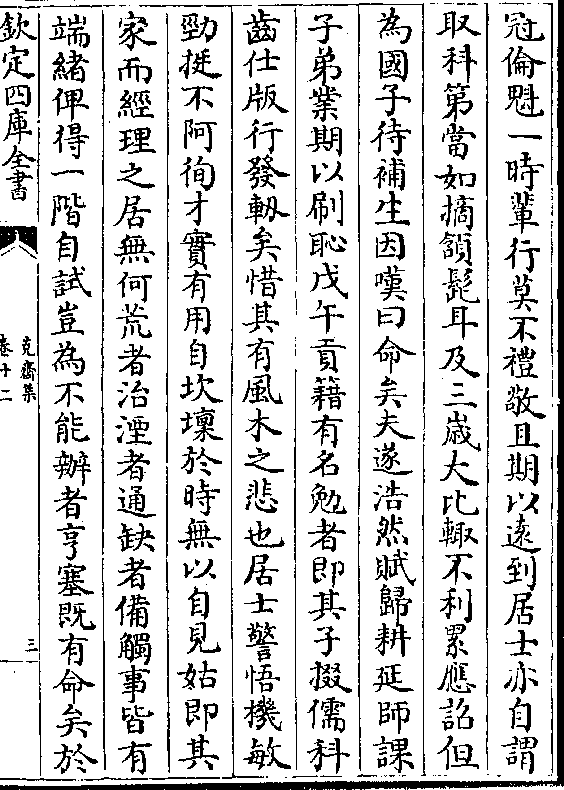 冠倫魁一時輩行莫不禮敬且期以遠到居士亦自謂
取科第當如摘頷髭耳及三歲大比輙不利累應詔但
為國子待補生因嘆曰命矣夫遂浩然賦歸耕延師課
子弟業期以刷恥戊午貢籍有名勉者即其子掇儒科
齒仕版行發軔矣惜其有風木之悲也居士警悟機敏
勁挺不阿徇才實有用自坎壈於時無以自見姑即其
家而經理之居無何荒者治湮者通缺者備觸事皆有
端緒俾得一階自試豈為不能辦者亨塞既有命矣於
欽定四庫全書
克齋集
卷十二
三